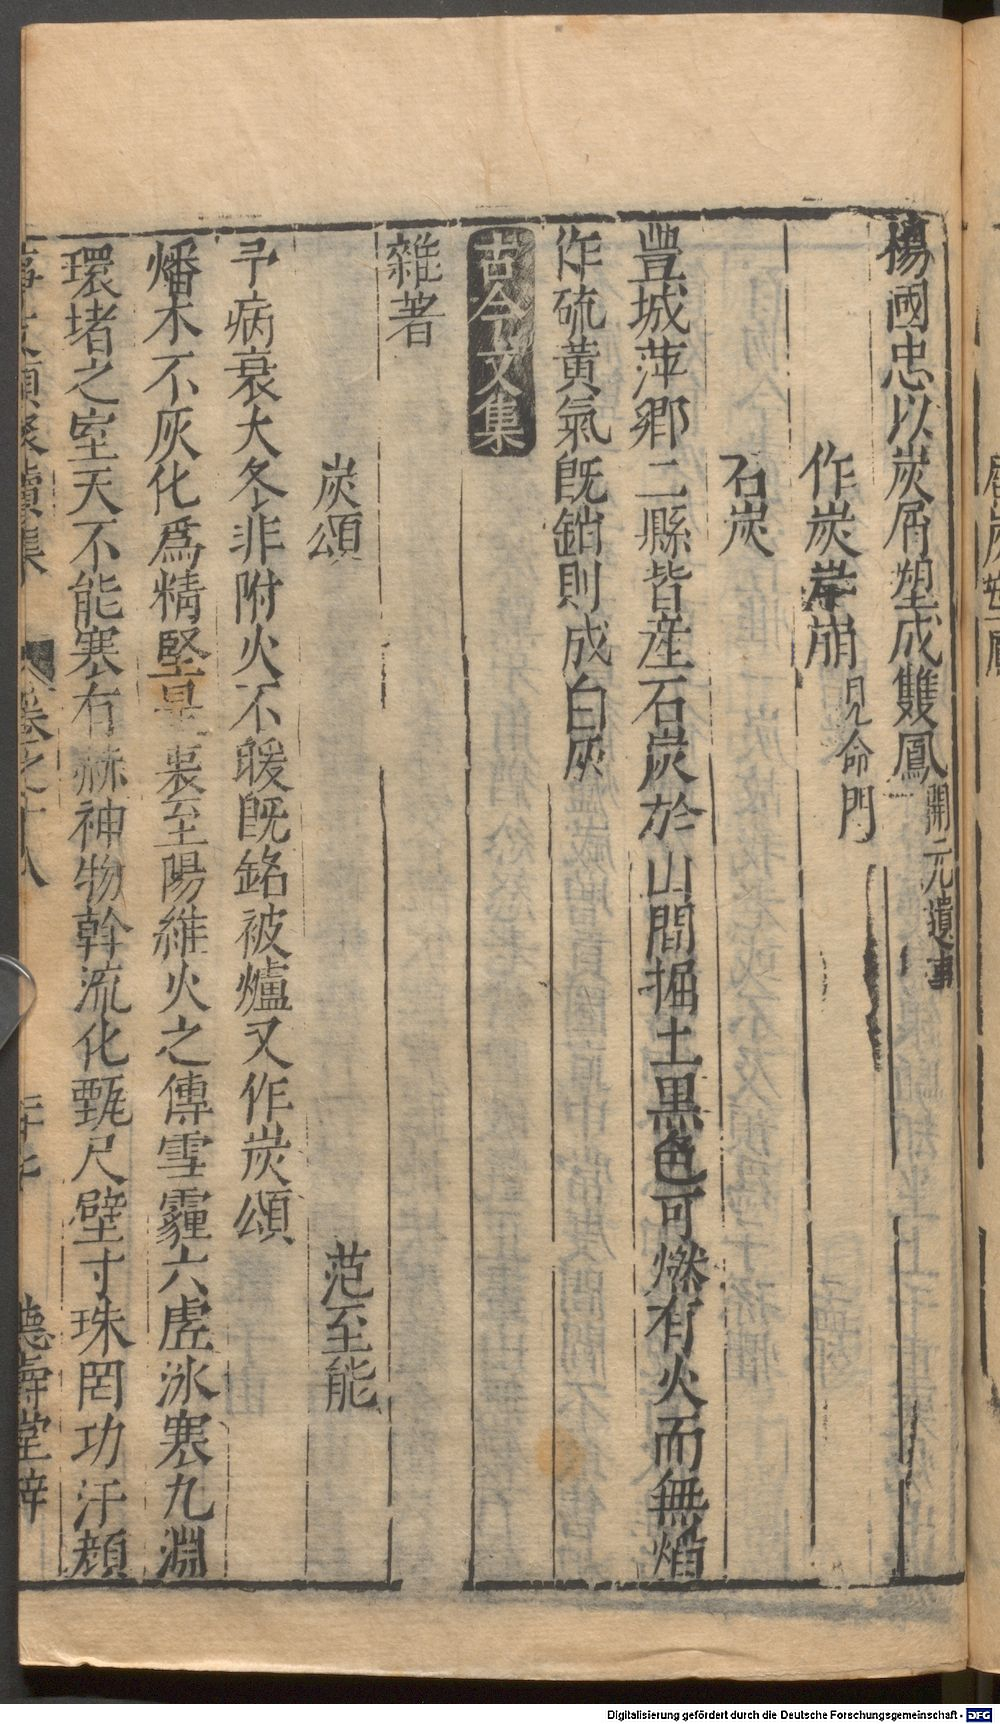 楊國忠以炭屑塑成雙鳳開元遺事
作炭岸崩見命門
石炭
豐城萍鄉二縣皆産石炭於山間掘土黒色可燃有火而無焰
作硫黃氣既銷則成白灰
古今文集
雜著
炭頌 范至能
予病衰大冬非附火不暖既銘被爐又作炭頌
燔木不灰化爲精堅是裹至陽維火之傳雪霾六虗冰寒九淵
環堵之室天不能寒有赫神物斡流化甄尺璧寸珠罔功汗顔
事文類聚續集 卷之十八 德壽堂梓
Digitalisierung gefördert durch die Deutsche Forschungsgemeinschaft - DFG